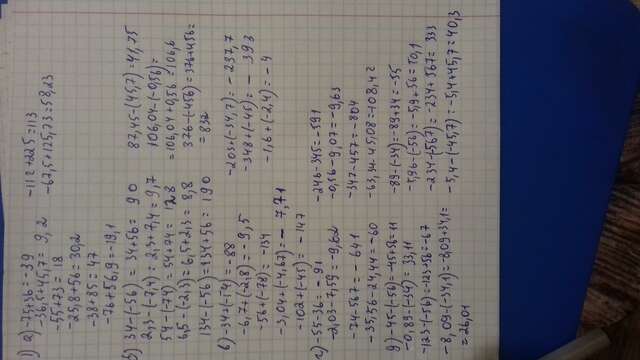 1) а) -25+36= 39
-36,5+45,7= 9,2
-55+73= 18
-25,8+56=30,2
-38+85= 47
-76+56,9=-19,1
-112+225=113
-67,5+125,73=58,23
б) 34-(-56) = 34+56= 90
2,3-(-7,4) = 2,3+7,4= 9,7
54-(-74) = 54+74= 128
6,5-(-2,3)= 6,5+2,3= 8,8
134-(-56)=134+56= 190
87,45-(45,7)=41,75
106,04-(-0,56)=
=106,04+0,56=106,6
376-(-456)=376+456=
= 832
в) -34+(-54)=-88
-6,7+(-2,8)= - 9,5
-56+(-78)= -134
-3,04+(-4,67)=- 7,71
-102+(-45)= -147
-203+(-34,7)= - 237,7
-348+(-45)= - 393
-1,6+(-2,4)= -4
г) -55-36= - 91
-2,03-7,59= -9,62
-74-567= - 641
-35,56-24,44=-60
-246-345=-591
-0,56-9,07=-9,63
-347-457=-804
-63,34-45,08=-108,42
д) -45-(-56)=-45+56=11
-0,89-(-34)= 33,11
-123-(-56)=-123+56=-67
-8,09-(-34,1)=-8,09+34,1=
=26,01
-89-(-34)=-89+34=-55
-5,96-(-56)=-5,9+56=50,1
-234-(-567)=-234+567= 333
-5,4-(-45,7)=-5,4+45,7=40,3